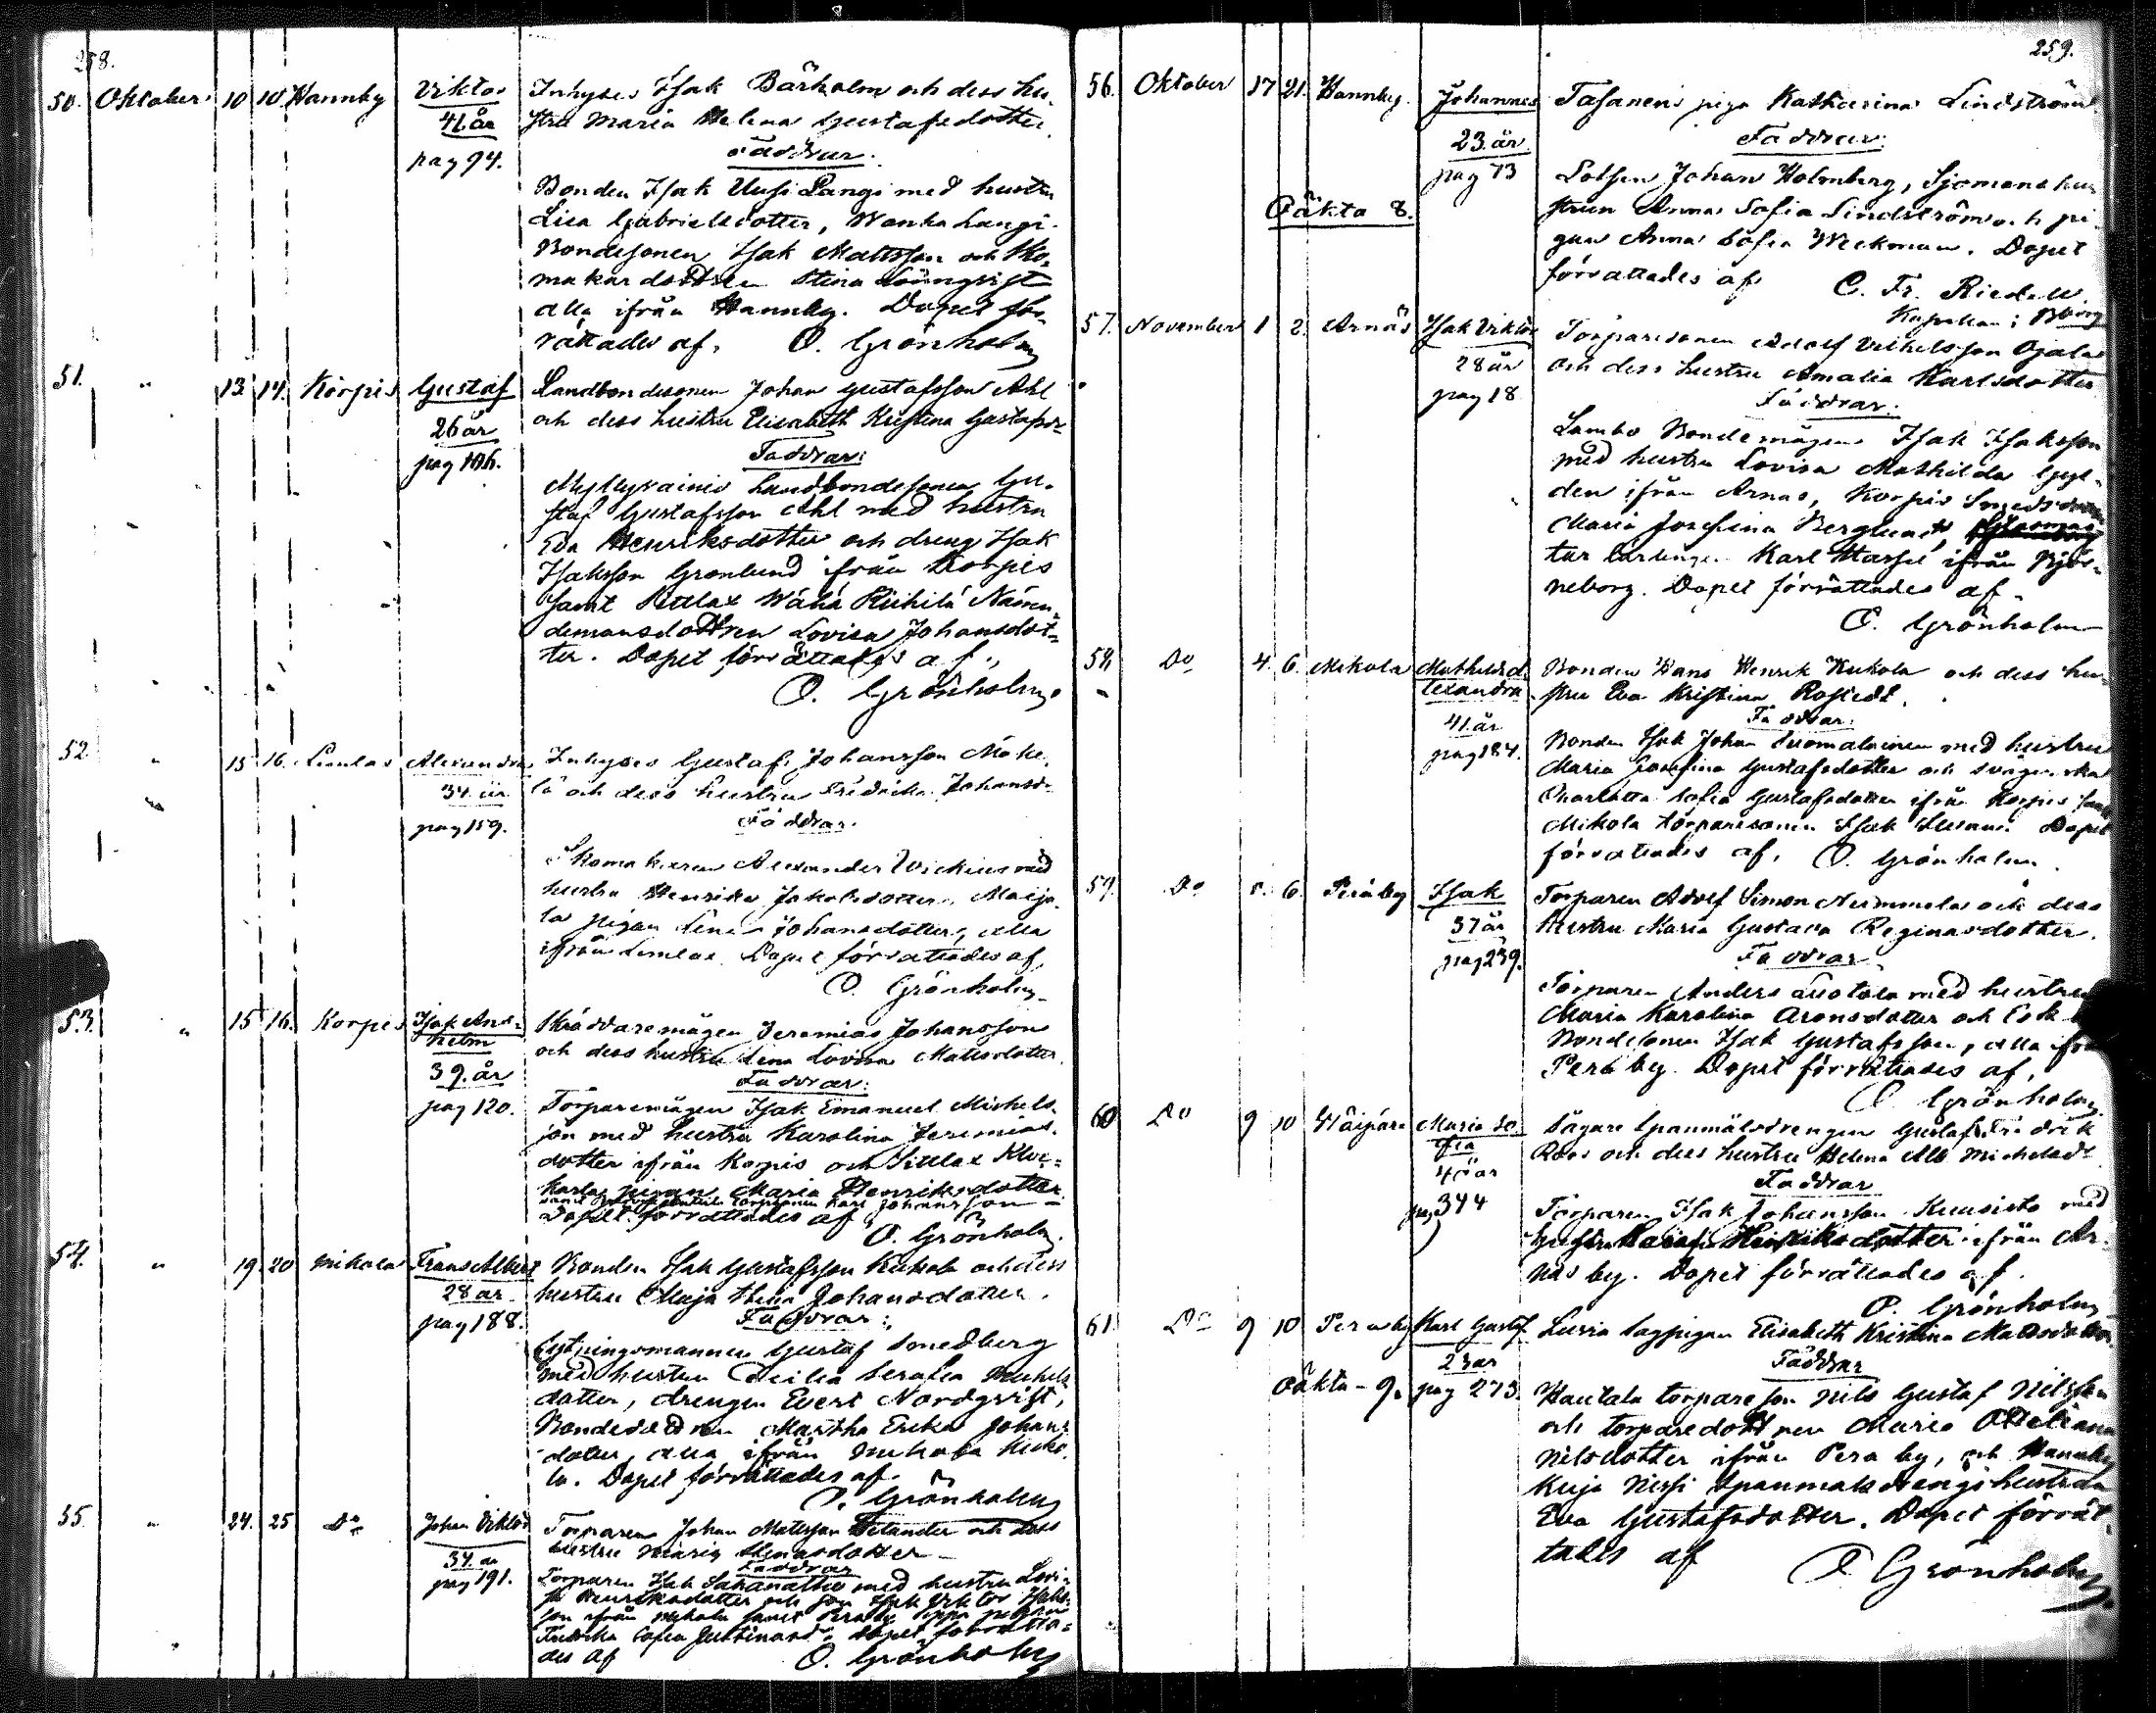 258.
50. Oktober 10 10 Hannby Viktor Inhyses Isak Bärholm och dess hu-
41. år stru Maria Helena Gustafsdotter
pag 94. Faddrar:
Bonden Isak Uusi Langi med hustru
Lisa Gabrielsdotter, Wanha Langi
Bondesonen Isak Mattsson och Sko-
makardottren Stina Löingvist
alla ifrån Hannby. Dopet för-
rättades af. O. Grönholm
51. " 13. 14. Korpis Gustaf Landbondesonen Johan Gustafsson Ahl
26 år och dess hustru Elisabeth Kristina Gustafsr
pag Faddrar:
Myllyrainio Landbondesonen Gu-
staf Gustafsson Ahl med hustru
Eva Henriksdotter och dreng Isak
Isaksson Grönlund ifrån Korpis
samt Sittlax Wähä Riihilä Nämn-
demansdottren Lovisa Johansdot-
ter. Dopet förrättades af.,
O. Grönholm
52 " 15 16. Lemlax Alexandra Inhyses Gustaf Johansson Mäke-
34. år lä och dess hustru Fredrika Johansd.
pag 159. Faddrar.
Skomakaren Alexander Wickius med
hustru Henrika Jakobsdotter, Maija-
la pigan Lena Johansdotter, alla
ifrån Lemlax. Dopet förrättades af,
O. Grönholm
53. " 15 16. Korpis Isak Ans-
helm Skräddaremågen Jeremias Johansson
och dess hustru Lena Lovisa Matsdotter
39. år Faddrar:
pag 120. Torparemågen Isak Emanuel Michels-
son med hustru Karolina Jeremias-
dotter ifrån Korpis och Sittlax Kloc-
karlas pigan Maria Henriksdotter
samt torparesonen Karl Johansson
Dopet förrättades af
O. Grönholm.
54. " 19. 20 Mikola Frans Albert Bonden Isak Gustafsson Kukola och dess
28 år hustru Maja Stina Johansdotter.
pag 188. Faddrar:
Lysningsmannen Gustaf Smedberg
med hustru Cecilia Serafia Michels
dotter, drengen Evert Nordqvist,
Bondedottren Martha Erika Johans
dotter, alla ifrån Mikola Kuko-
la. Dopet förrättades af.
O. Grönholm
55. " 24. 25 Do Johan Viktor Torparen Johan Matsson Helander och dess
hustru Maria Stenasdotter
34. år Faddrar
pag 191. Torparen Isak Sakanattu med hustru Lovi-
sa Henriksdotter och son Isak Viktor Isaks-
son ifrån Mikola samt Peraby Seppä pigan
Fredrika Sofia Gustinasd. Dopet förrätta-
des af O. Grönholm
259.
56. Oktober 17 21. Hannby. Johannes Tasanens piga Katharina Lindström
23. år Faddrar:
pag 73 Lotsen Johan Holmberg, Sjömans hu-
Oäkta 8. strun Anna Sofia Lindström och pi-
gan Anna Sofia Weckman. Dopet
förrättades af C. Fr. Riedell.
Kapellan i Bborg
57. November 1 2. Arnäs Isak Viktor Torparesonen Adolf Vilhelsson Ojala
28 år och dess hustru Amalia Karlsdotter
pag 18 Faddrar:
Lambo Bondemågen Isak Isaksson
med hustru Lovisa Mathilda Gyl-
den ifrån Arnäs, Korpis Smeds
Maria Josefina Berglund,
tur lärlingen Karl Hassel ifrån Björ-
neborg. Dopet förrättades af
O. Grönholm
58. Do 4. 6. Mikola Mathilda A-
lexandra Bonden Hans Henrik Kukola och dess hu-
stru Eva Kristina Rostedt.
41. år Faddrar:
pag 184. Bonden Isak Johan Suomalainen med hustru
Maria Josefina Gustafsdotter och svägerskan
Charlotta Sofia Gustafsdotter ifrån Korpis samt
Mikola torparesonen Isak Dopet
förrättades af, O. Grönholm.
59. Do 5. 6. Peräby Isak Torparen Adolf Simon Nummela och dess
37 år hustru Maria Gustava Reginasdotter.
pag 239. Faddrar
Torparen Anders Luotola med hustru
Maria Karolina Aronsdotter och Eek
Bondesonen Isak Gustafsson, alla ifrån
Pera by. Dopet förrättades af,
O. Grönholm
60 Do 9 10 Maria So-
fia Sågare Spanmålsdrengen Gustaf Fredrik
Roos och dess hustru Helena Alb Michelsdr
40 år Faddrar
pag 344 Torparen Isak Johansson Kuusisto med
hustru Maria Henriksdotter ifrån Ar-
näs by. Dopet förrättades af.
O. Grönholm
61. Do 9 10 Peraby Karl Gustaf Lusia Sagpigan Elisabeth Kristina Matsdotter
23 år Faddrar
Oäkta - 9. pag 273. Hautala torpareson Nils Gustaf Nilsson
och torparedottren Maria Ottiliana
Nilsdotter ifrån Pera by, och Hannby
Kuja Nissi Spanmålsdrengshustrun
Eva Gustafsdotter. Dopet förrät-
tades af O Grönholm